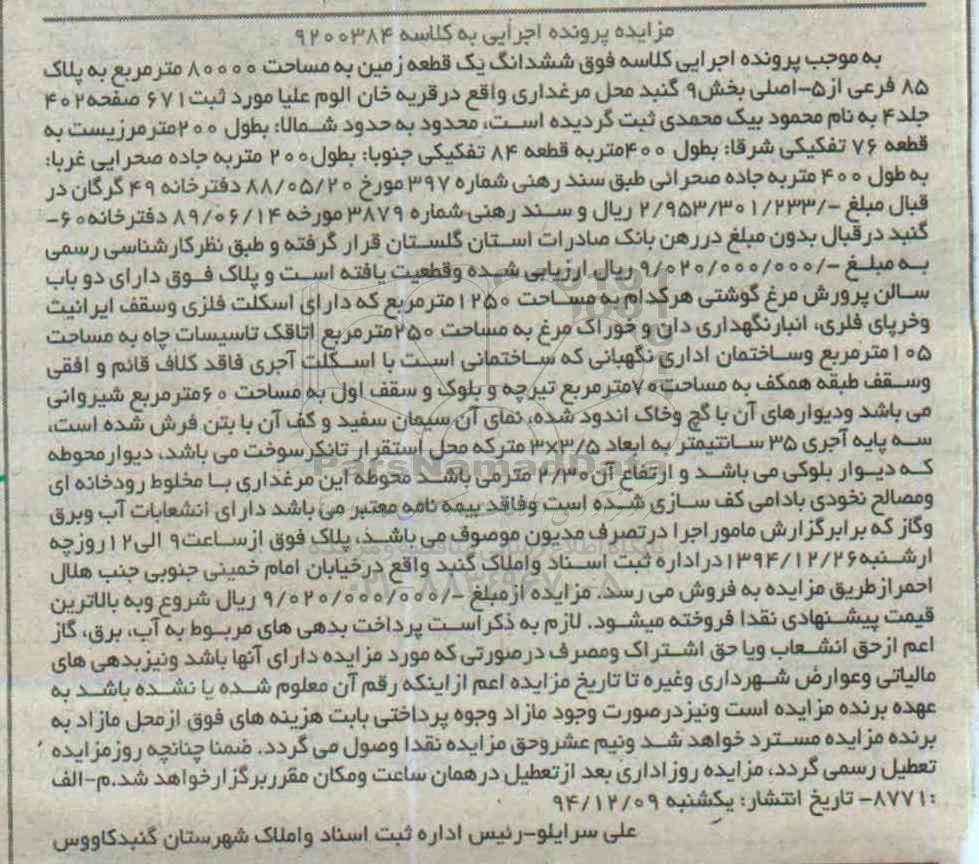 مزایده پرونده اجرایی به کلاسه ۹۲۰۰۳۸۴
به موجب پرونده اجرایی کلاسه فوق ششدانگ یک قطعه زمین به مساحت ۸۰۰۰۰ مترمربع به پلاک
۸۵ فرعی از۵-اصلی بخش۹ گنبد محل مرغداری واقع درقریه خان الوم علیا مورد ثبت۶۷۱ صفحه۴۰۲
جلد۴ به نام محمود بیک محمدی ثبت گردیده است، محدود به حدود شمالا: بطول ۲۰۰مترمرزیست به
قطعه ۷۶ تفکیکی شرقا: بطول ۴۰۰متربه قطعه ۸۴ تفکیکی جنوبا: بطول۲۰۰ متربه جاده صحرایی غربا:
به طول ۴۰۰ متربه جاده صحرائی طبق سند رهنی شماره ۳۹۷ مورخ ۸۸/۰۵/۲۰ دفترخانه ۴۹ گرگان در
قبال مبلغ -/۲/۹۵۳/۳۰۱/۲۳۳ ریال و سند رهنی شماره ۳۸۷۹ مورخه ۸۹/۰۶/۱۴ دفترخانه۶۰-
گنبد درقبال بدون مبلغ دررهن بانک صادرات استان گلستان قرار گرفته و طبق نظرکارشناسی رسمی
به مبلغ -/۹/۰۲۰/۰۰۰/۰۰۰ ریال ارزیابی شده وقطعیت یافته است و پلاک فوق دارای دو باب
سالن پرورش مرغ گوشتی هرکدام به مساحت ۱۲۵۰مترمربع که دارای اسکلت فلزی وسقف ایرانیت
وخرپای فلزی، انبارنگهداری دان و خوراک مرغ به مساحت ۲۵۰مترمربع اتاقک تاسیسات چاه به مساحت
۱۰۵مترمربع وساختمان اداری نگهبانی که ساختمانی است با اسکلت آجری فاقد کلاف قائم و افقی
وسقف طبقه همکف به مساحت۷۰مترمربع تیرچه و بلوک و سقف اول به مساحت ۶۰مترمربع شیروانی
می باشد ودیوارهای آن با گچ وخاک اندود شده، نمای آن سیمان سفید و کف آن با بتن فرش شده است،
سه پایه آجری ۳۵ سانتیمتر به ابعاد ۳×۳/۵ مترکه محل استقرار تانکرسوخت می باشد، دیوارمحوطه
که دیوار بلوکی می باشد و ارتفاع آن ۲/۳۰ مترمی باشد محوطه این مرغداری با مخلوط رودخانه ای
ومصالح نخودی بادامی کف سازی شده است وفاقد بیمه نامه معتبر می باشد دارای انشعابات آب وبرق
وگاز که برابرگزارش مامور اجرا درتصرف مدیون موصوف می باشد، پلاک فوق ازساعت۹ الی۱۲روزچه
ارشنبه۱۳۹۴/۱۲/۲۶ دراداره ثبت اسناد واملاک گنبد واقع درخیابان امام خمینی جنوبی جنب هلال
احمرازطریق مزایده به فروش می رسد. مزایده ازمبلغ -/۹/۰۲۰/۰۰۰/۰۰۰ ریال شروع وبه بالاترین
قیمت پیشنهادی نقدا فروخته میشود. لازم به ذکراست پرداخت بدهی های مربوط به آب، برق، گاز
اعم ازحق انشعاب ویا حق اشتراک ومصرف درصورتی که مورد مزایده دارای آنها باشد ونیزبدهی های
مالیاتی وعوارض شهرداری وغیره تا تاریخ مزایده اعم ازاینکه رقم آن معلوم شده یا نشده باشد به
عهده برنده مزایده است ونیزدرصورت وجود مازاد وجوه پرداختی بابت هزینه های فوق ازمحل مازاد به
برنده مزایده مسترد خواهد شد ونیم عشروحق مزایده نقدا وصول می گردد. ضمنا چنانچه روزمزایده
تعطیل رسمی گردد، مزایده روزاداری بعد ازتعطیل درهمان ساعت ومکان مقرربرگزارخواهد شد.م-الف
:۸۷۷۱- تاریخ انتشار: یکشنبه ۹۴/۱۲/۰۹
علی سرایلو-رئیس اداره ثبت اسناد واملاک شهرستان گنبدکاووس